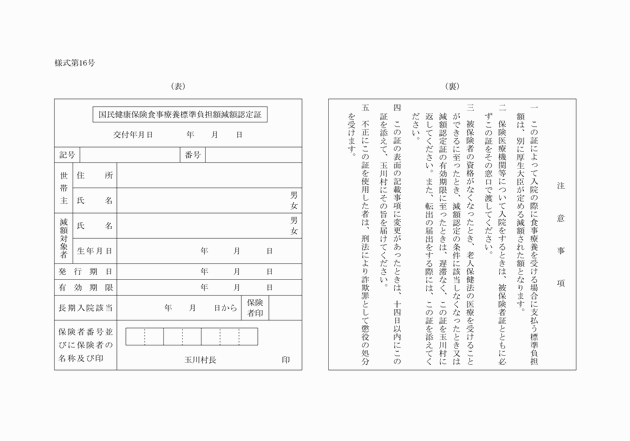 様式第16号
（表）
国民健康保険食事療養標準負担額減額認定証
交付年月日　　年　　月　　日
記号　　番号
世帯主　住所
氏名　男女
減額対象者　氏名　男女
生年月日　　年　　月　　日
発行期日　　年　　月　　日
有効期限　　年　　月　　日
長期入院該当　　年　　月　　日から　保険者印
保険者番号並
びに保険者の
名称及び印
玉川村長　　印
（裏）
注意事項
一　この証によって入院の際に食事療養を受ける場合に支払う標準負担
額は、別に厚生大臣が定める減額された額となります。
二　保険医療機関等について入院をするときは、被保険者証とともに必
ずこの証をその窓口で渡してください。
三　被保険者の資格がなくなったとき、老人保健法の医療を受けること
ができるに至ったとき、減額認定の条件に該当しなくなったとき又は
減額認定証の有効期限に至ったときは、遅滞なく、この証を玉川村に
返してください。また、転出の届出をする際には、この証を添えてく
ださい。
四　この証の表面の記載事項に変更があったときは、十四日以内にこの
証を添えて、玉川村にその旨を届けてください。
五　不正にこの証を使用した者は、刑法により詐欺罪として懲役の処分
を受けます。